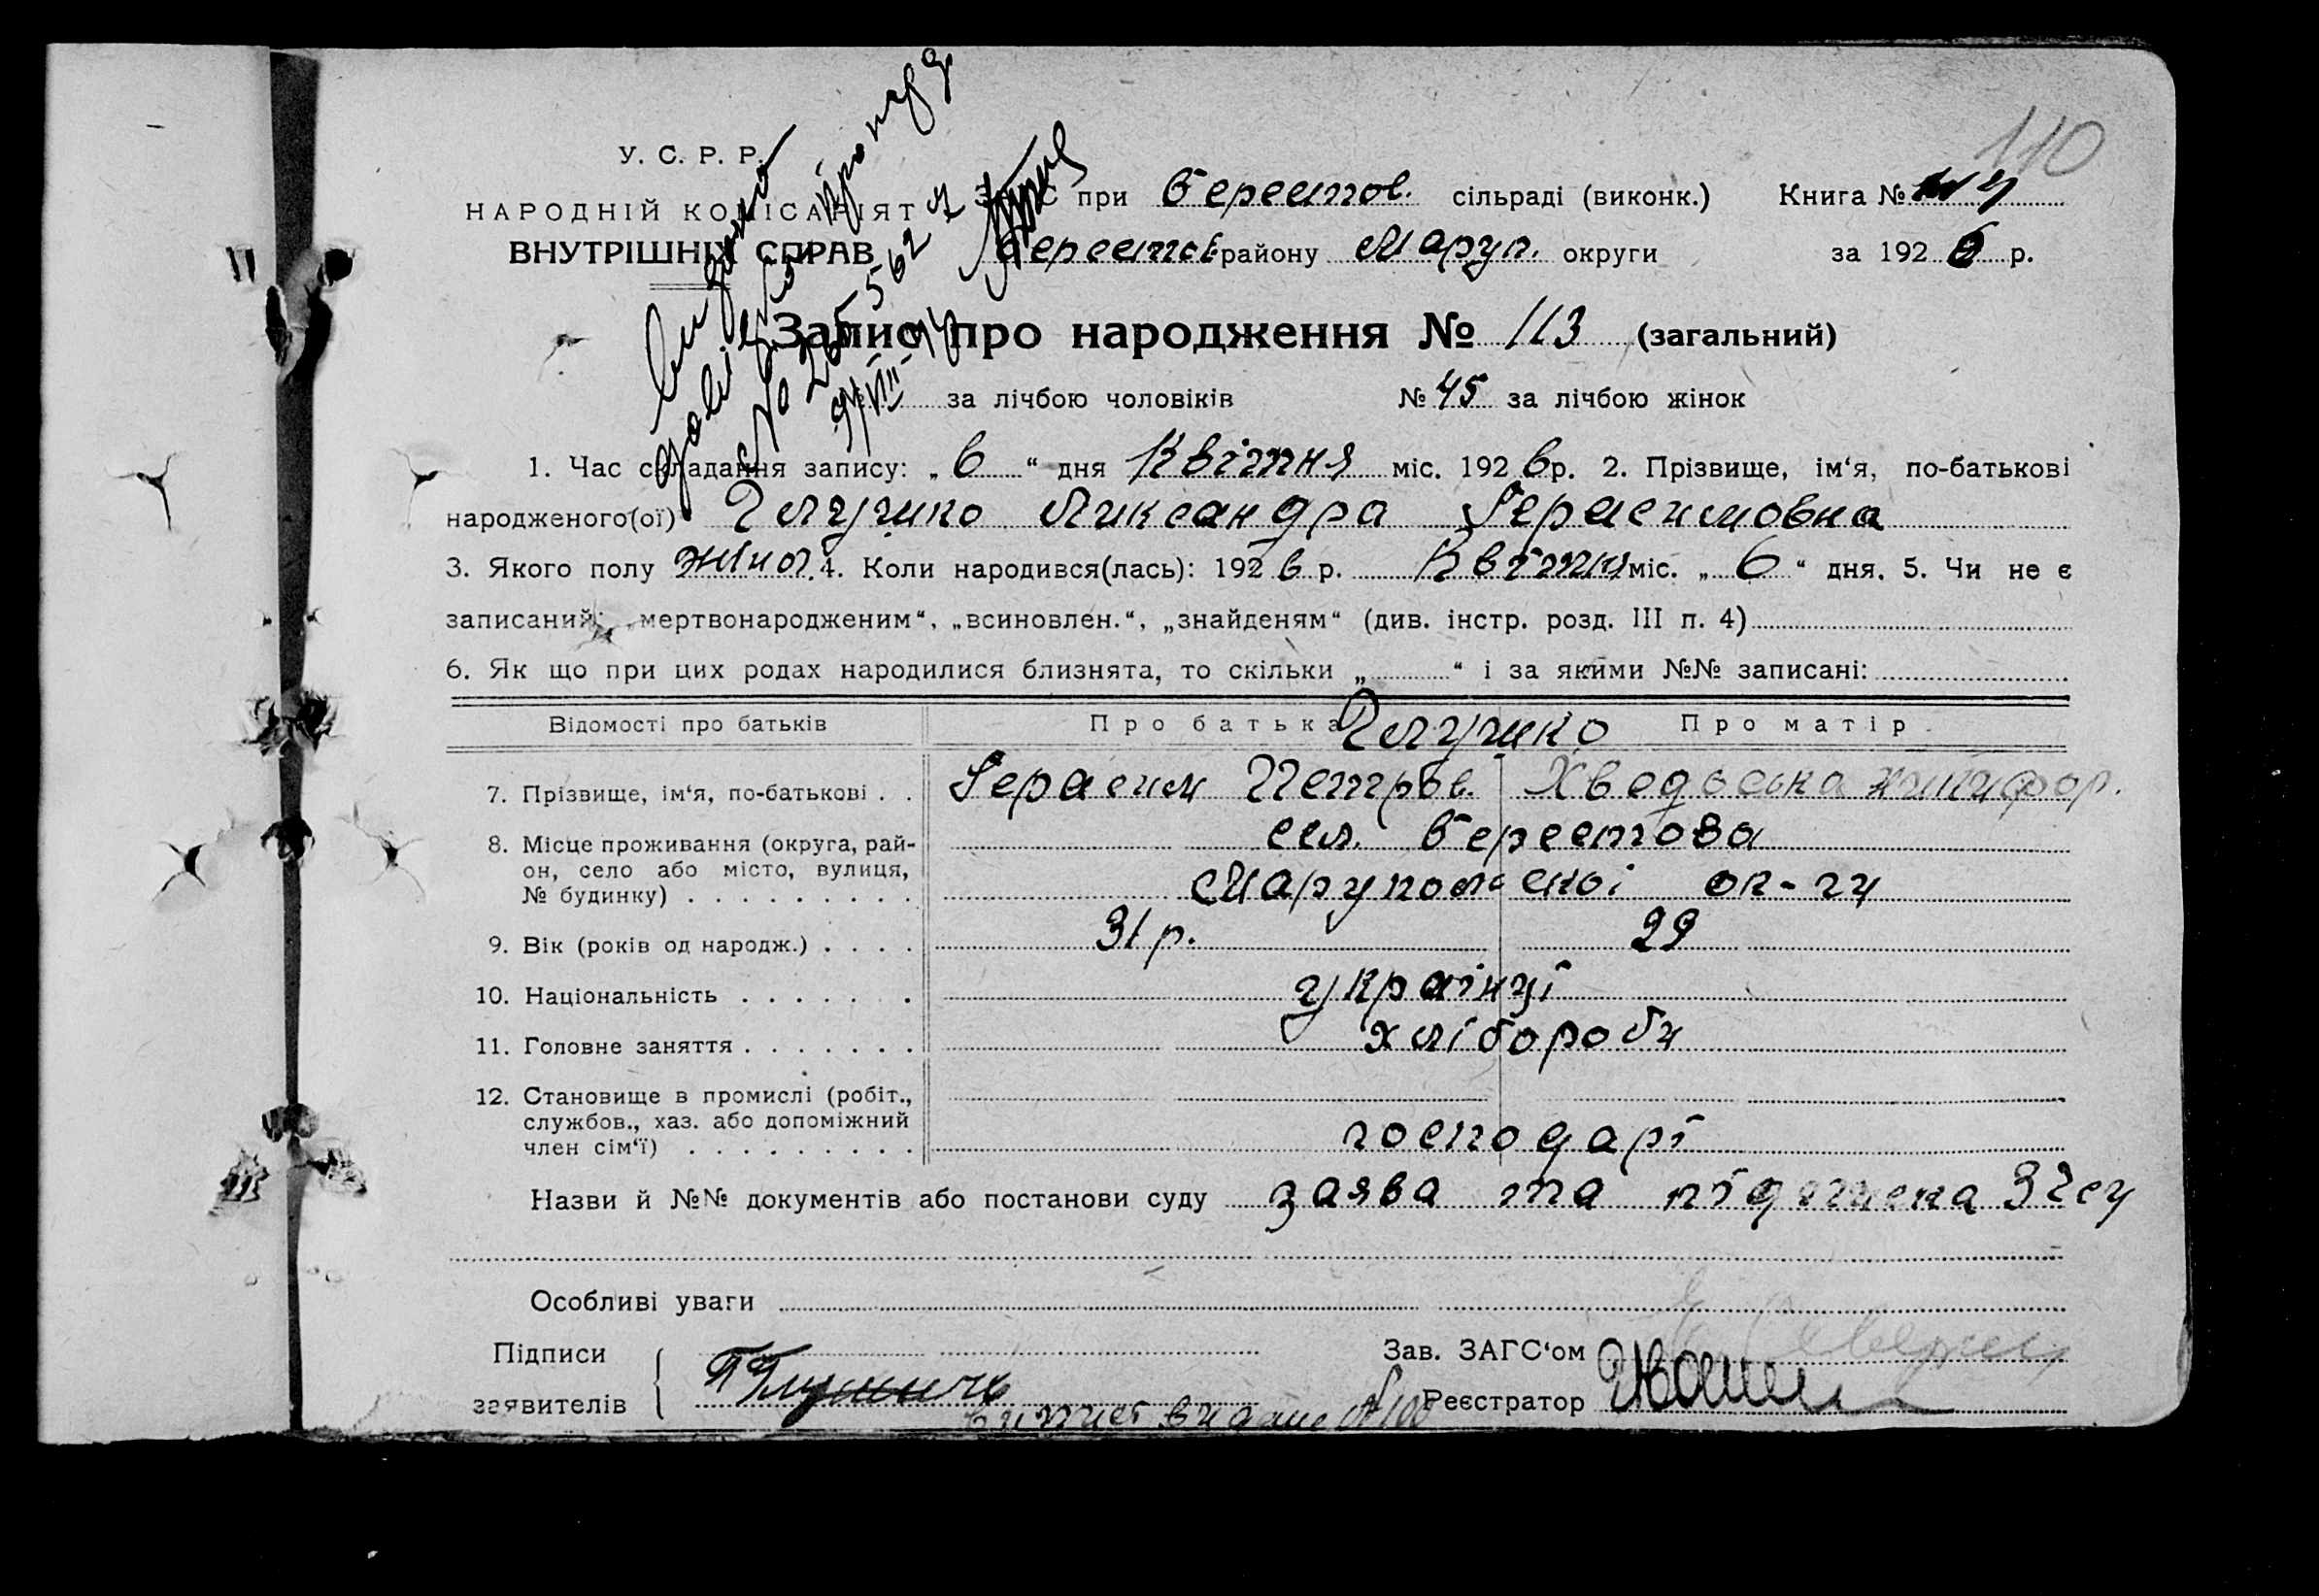 110
У. С. Р. Р.
НАРОДНІЙ КОМІСАРІЯТ
ВНУТРІШНІХ СПРАВ
ЗАГС при Берестов. сільраді (виконк.) Книга №
Берестов району Маруп. округи за 1926 р.
Видано
довідку про нар
№ 265562
9/VIII
Запис про народження № 113 (загальний)
№ за лічбою чоловіків № 45 за лічбою жінок
1. Час складання запису: „ 6 “ дня Квітня міс. 1926 р. 2. Прізвище, ім‘я, по-батькові
народженого(ої) Глущико Ликсандра Герасимовна
3. Якого полу жіноч. 4. Коли народився(лась): 1926 р. Квітня міс. „ 6 “ дня. 5. Чи не є
записаний: „мертвонародженим“, „всиновлен.“, „знайденям“ (див. інстр. розд. III п. 4)
6. Як що при цих родах народилися близнята, то скільки „ “ і за якими №№ записані:
Відомості про батьків Про батька Про матір
Глущико
7. Прізвище, ім‘я, по-батькові . . Герасим Петров. Хведоська Никифор.
8. Місце проживання (округа, район, село або місто, вулиця, № будинку) . . . . . . . . . сел. Берестова
Марупольскоі ок-ги
9. Вік (років од народж.) . . . . 31 р. 29
10. Національність . . . . . . . украінці
11. Головне заняття . . . . . . . хлібороби
12. Становище в промислі (робіт., службов., хаз. або допоміжний член сім‘ї) . . . . . . . . . господарі
Назви й №№ документів або постанови суду заява та
Особливі уваги
Підписи Зав. ЗАГС‘ом
заявителів Реєстратор
Випис видано №